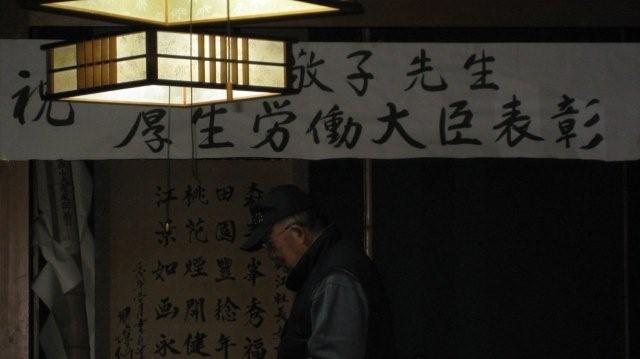 祝
敬子 先生
厚生労働大臣表彰
江社長
峯秀福
田園豊稔年
桃花煙開健
江景如画永